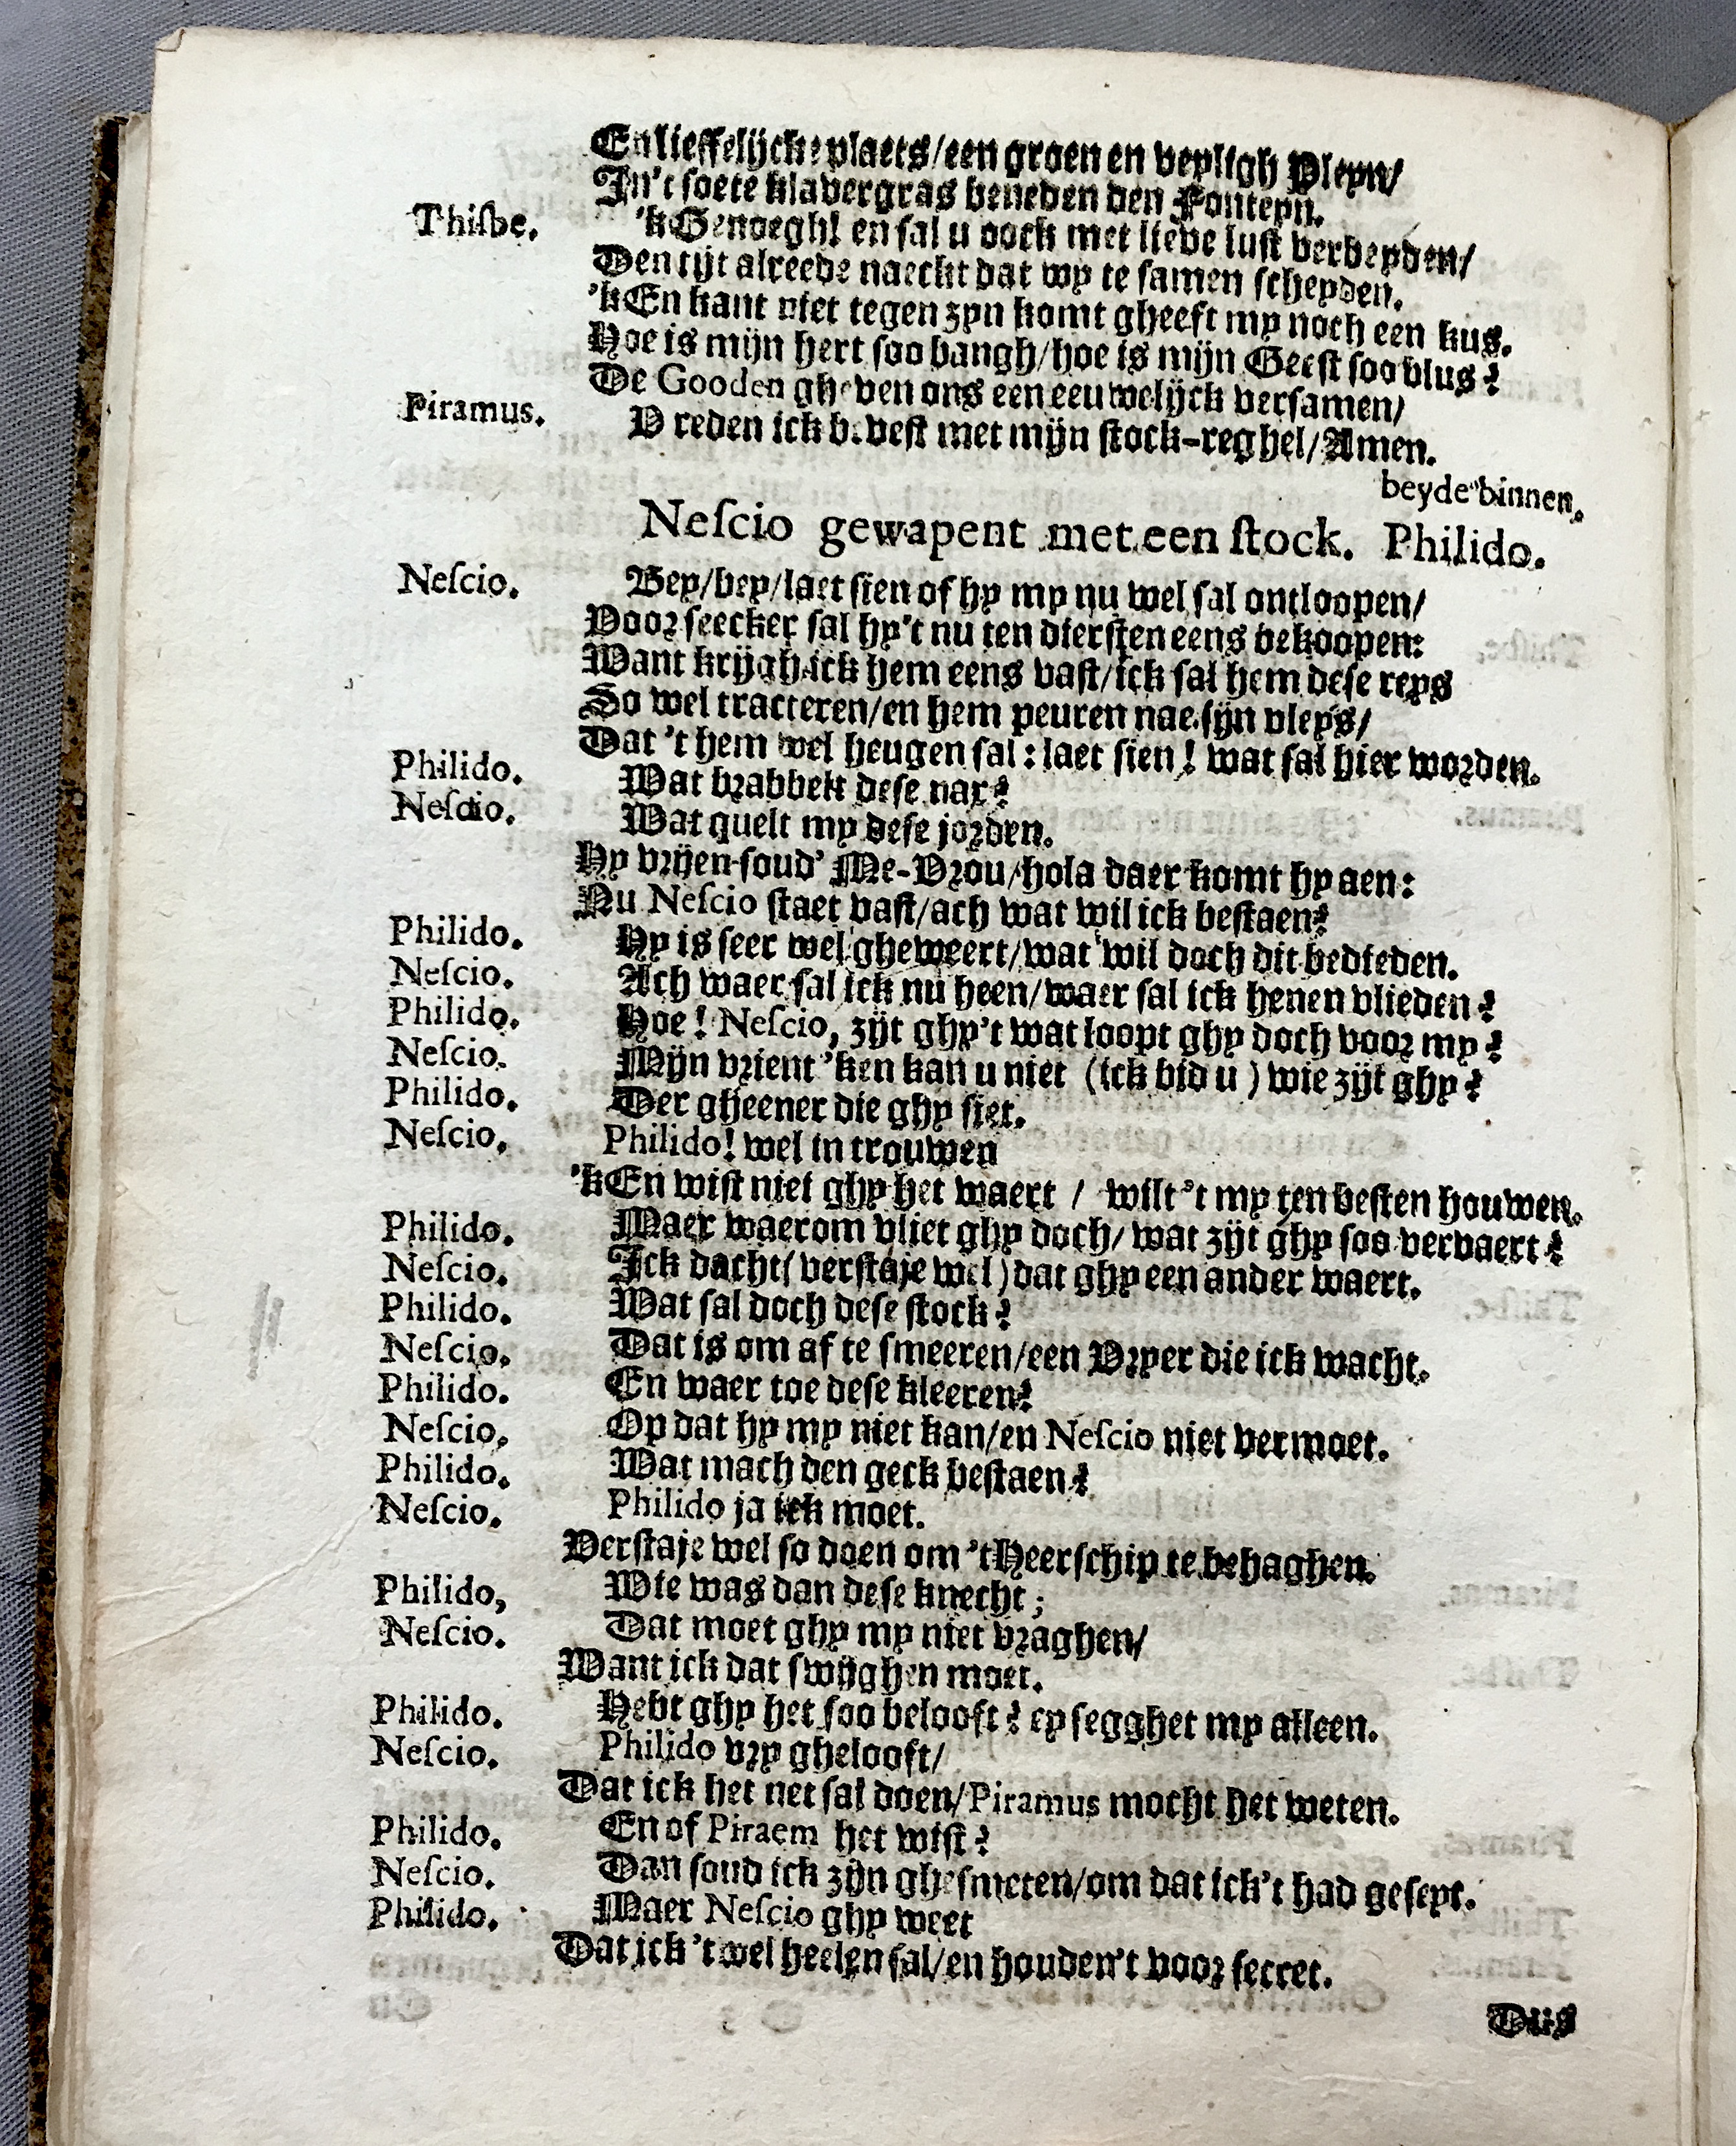 En lieffelijcke plaets/een groen en veyligh Pleyn/
In't soete klavergras beneden den Fonteyn.
Thisbe. 'k Genoegh! en sal u oock met lieve lust verbeyden/
Den tijt alreede naeckt dat wy te samen scheyden.
'k En kant niet tegen zyn komt gheeft my noch een kus.
Hoe is mijn hert soo bangh/hoe is mijn Geest soo blus?
De Gooden gheven ons een eeuwelijck versamen/
Piramus. D reden ick b.vest met mijn stock-reghel/Amen.
beyde binnen.
Nescio gewapent met een stock. Philido.
Nescio. Bey/bey/laet sien of hy my nu wel sal ontloopen/
Voor seecker sal hy't nu ten diersten eens bekoopen:
Want krijgh ick hem eens vast/ick sal hem dese reys
So wel tracteren/en hem peuren nae sijn vleys/
Dat 't hem wel heugen sal: laet sien! wat sal hier worden.
Philido. Wat brabbelt dese nar?
Nescio. Wat quelt my dese jorden.
Hy vrijen soud' Me-Vrou/hola daer komt hy aen:
Nu Nescio staet vast/ach wat wil ick bestaen?
Philido. Hy is seer wel gheweert/wat wil doch dit bedieden.
Nescio. Ach waer sal ick nu heen/waer sal ick henen vlieden?
Philido. Hoe! Nescio, zijt ghy't wat loopt ghy doch voor my?
Nescio. Mijn vrient 'ken kan u niet (ick bid u) wie zijt ghy?
Philido. Der gheener die ghy siet.
Nescio. Philido! wel in trouwen
'k En wist niet ghy het waert / wilt 't my ten besten houwen.
Philido. Maer waerom vliet ghy doch/wat zijt ghy soo vervaert?
Nescio. Ick dacht(verstaje wel)dat ghy een ander waert.
Philido. Wat sal doch dese stock?
Nescio. Dat is om af te smeeren/een Vryer die ick wacht.
Philido. En waer toe dese kleeren?
Nescio. Op dat hy my niet kan/en Nescio niet vermoet.
Philido. Wat mach den geck bestaen?
Nescio. Philido ja ick moet.
Verstaje wel so doen om 't Heerschip te behaghen.
Philido, Wie was dan dese knecht;
Nescio. Dat moet ghy my niet vraghen/
Want ick dat swijghen moet.
Philido. Hebt ghy het soo belooft? ey segghet my alleen.
Nescio. Philido vry ghelooft/
Dat ick het net sal doen/Piramus mocht het weten.
Philido. En of Piraem het wist?
Nescio. Dan soud ick zijn ghesmeten/om dat ick't had geseyt.
Philido. Maer Nescio ghy weet
Dat ick 't wel heelen sal/en houden't voor secret.
Dus